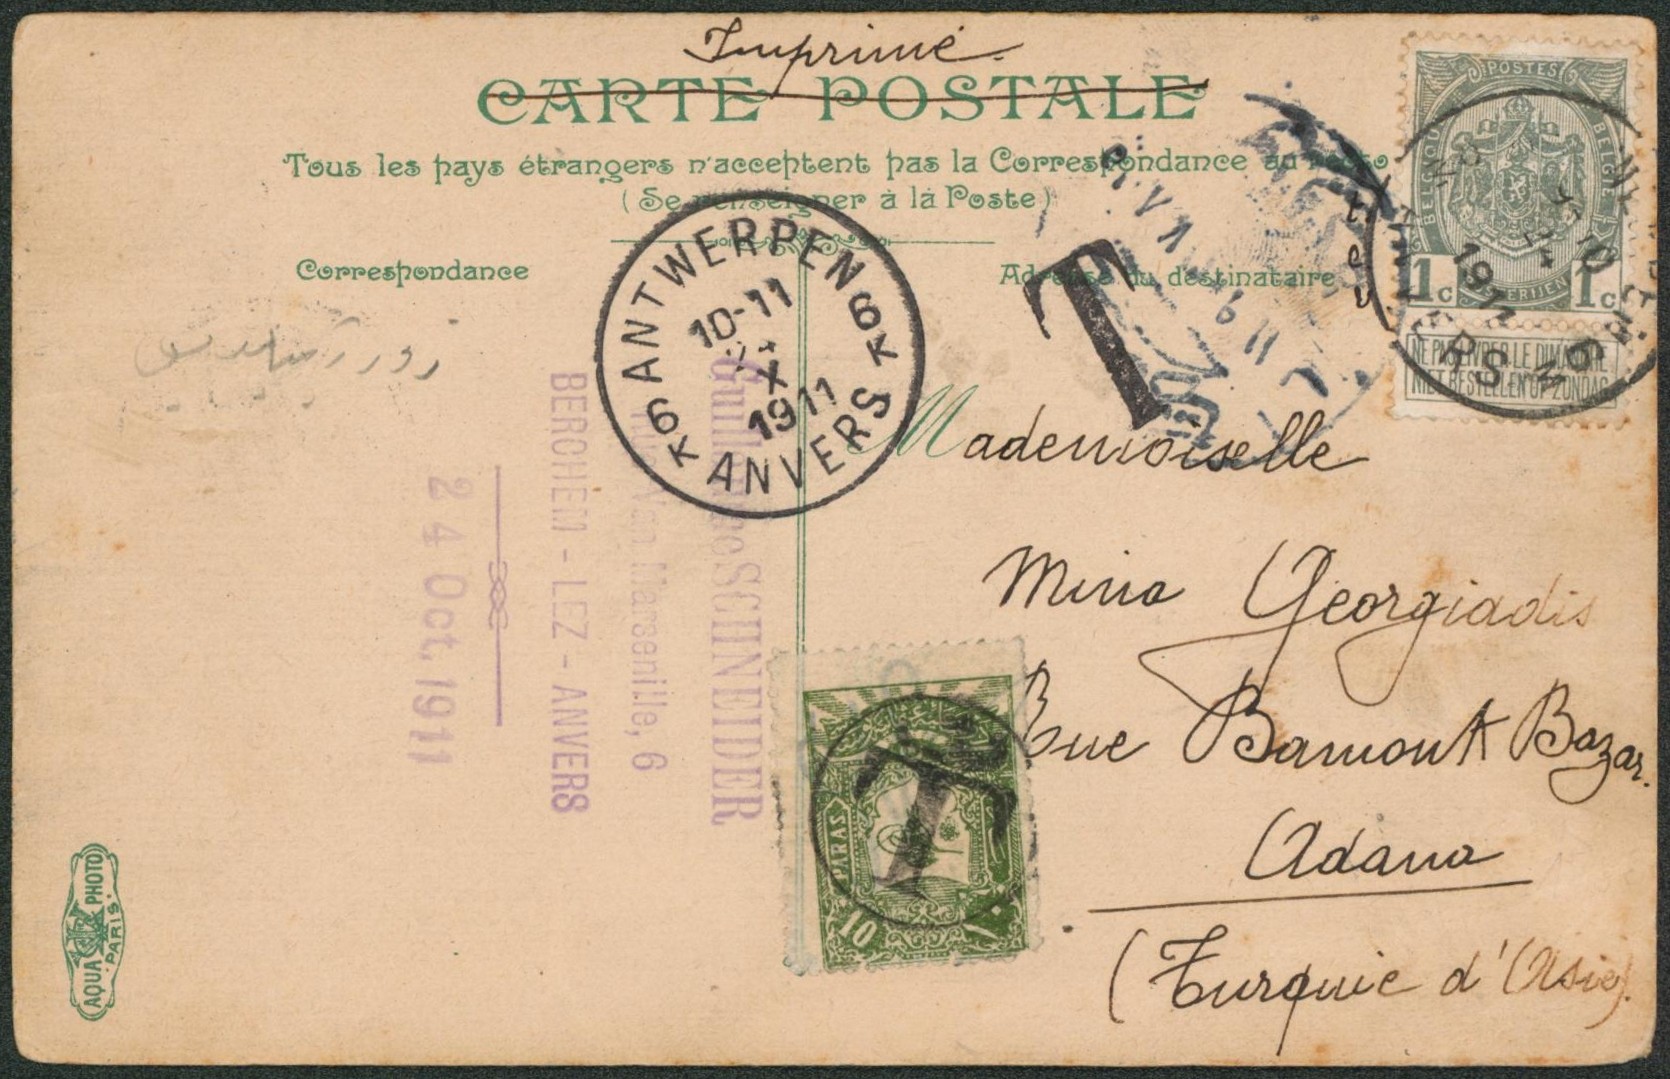 Imprimé
CARTE POSTALE
Tous les pays étrangers n'acceptent pas la Correspondance au
(Se renseigner à la Poste)
Correspondance
Adresse du destinataire
POSTES
BELGIQUE
BELGIË
1c 1c
NE PAS LIVRER LE DIMANCHE
NIET BESTELLEN OP ZONDAG
ANVERS
6
ANTWERPEN
6K
10-11
X
1911
K6
ANVERS
T
Mademoiselle
Mina Georgiadis
Rue Bamont Bazar.
Adana
(Turquie d'Asie).
SCHNEIDER
Van Marsenille, 6
BERCHEM - LEZ - ANVERS
24 Oct, 1911
T
PARAS
10
١٠
AQUA PHOTO
PARIS